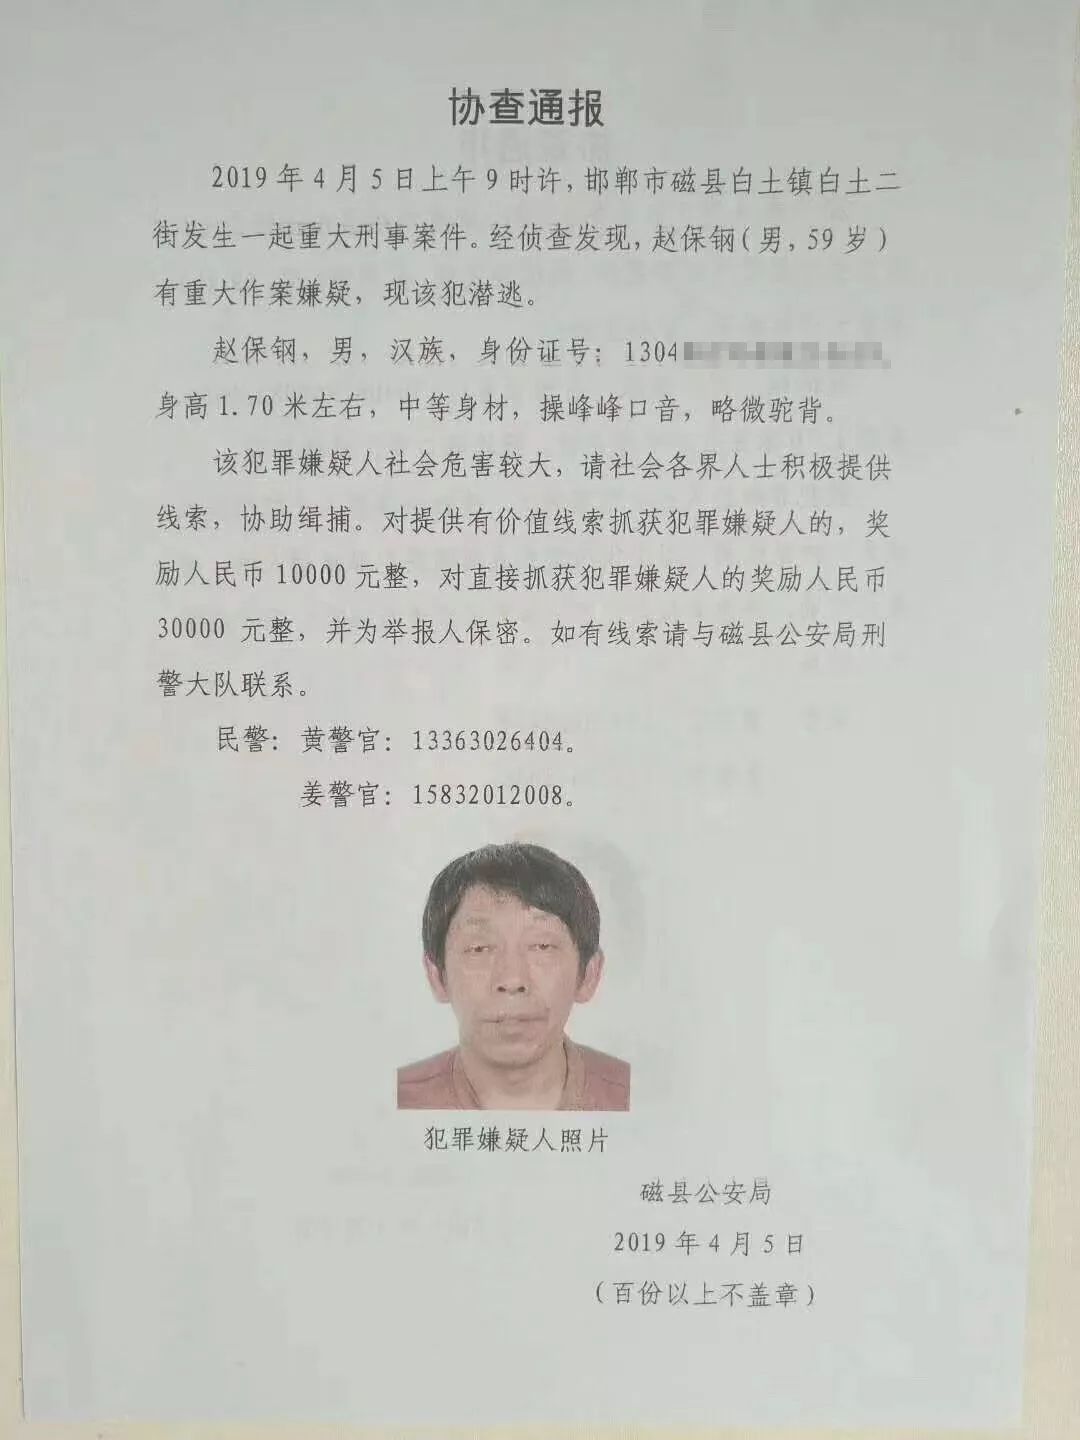 协查通报
2019年4月5日上午9时许，邯郸市磁县白土镇白土二
街发生一起重大刑事案件。经侦查发现，赵保钢（男，59岁）
有重大作案嫌疑，现该犯潜逃。
赵保钢，男，汉族，身份证号：1304
身高1.70米左右，中等身材，操峰峰口音，略微驼背。
该犯罪嫌疑人社会危害较大，请社会各界人士积极提供
线索，协助缉捕。对提供有价值线索抓获犯罪嫌疑人的，奖
励人民币10000元整，对直接抓获犯罪嫌疑人的奖励人民币
30000 元整，并为举报人保密。如有线索请与磁县公安局刑
警大队联系。
民警：黄警官：13363026404。
姜警官：15832012008。
犯罪嫌疑人照片
磁县公安局
2019年4月5日
（百份以上不盖章）